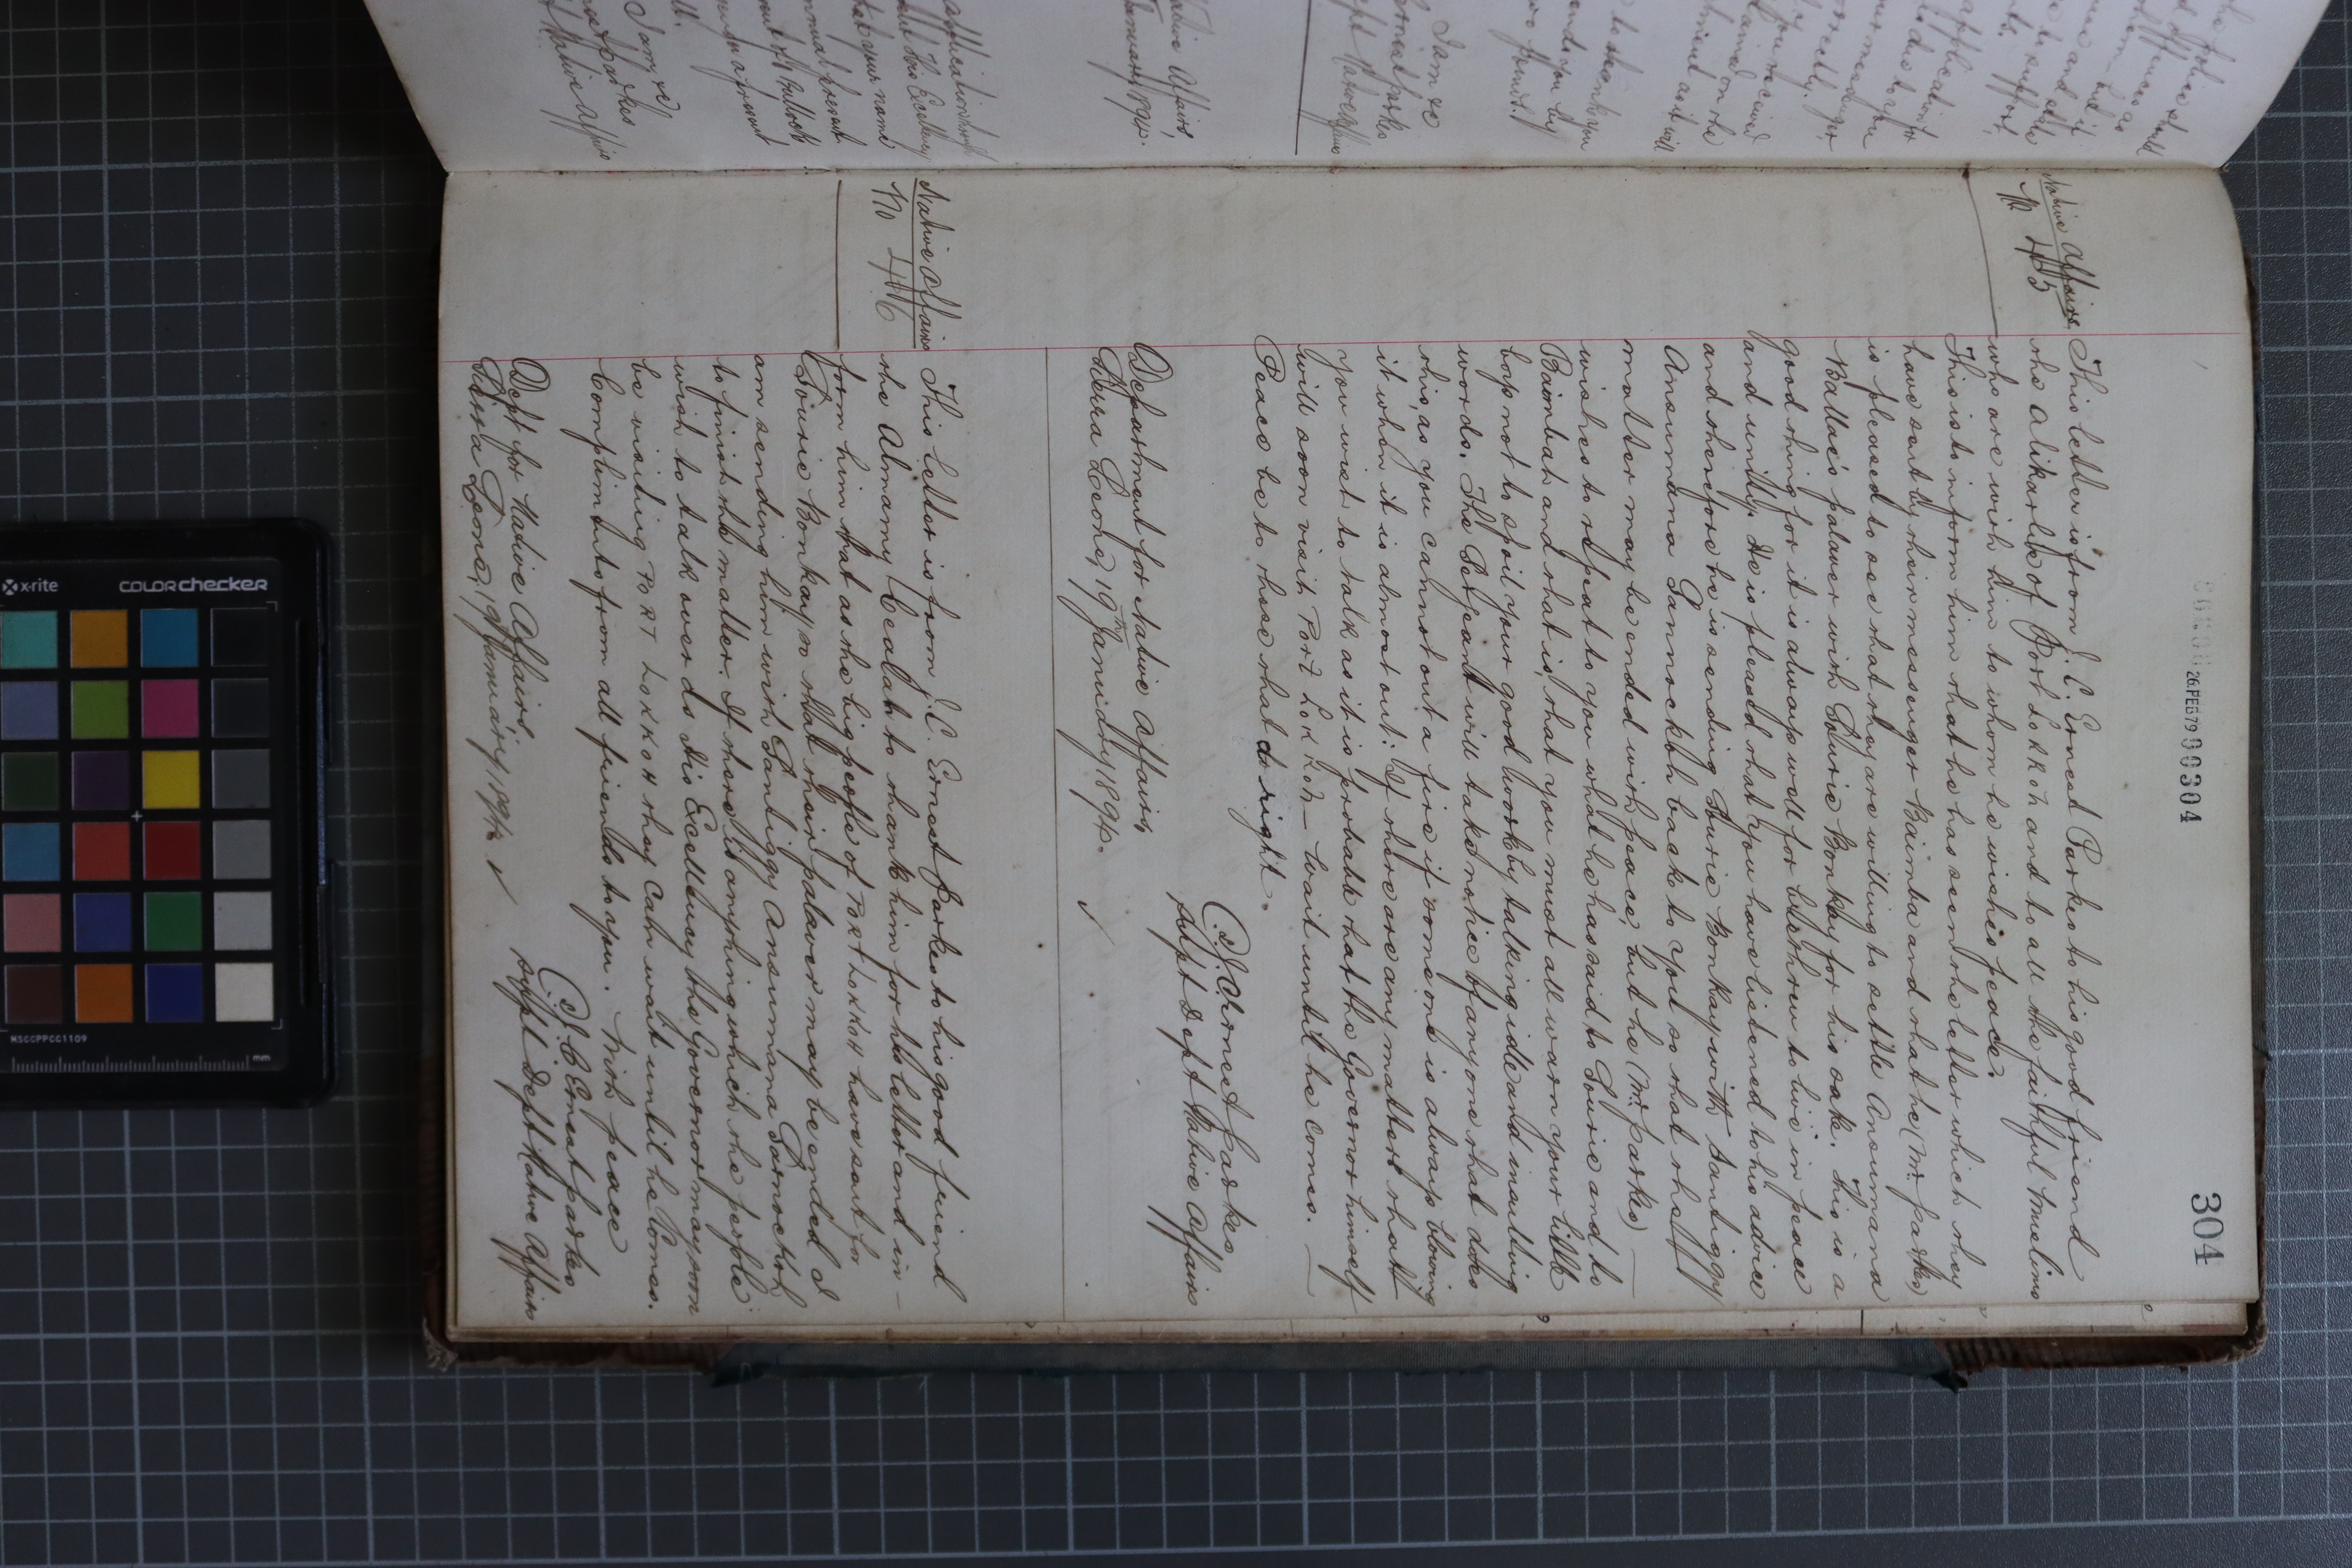 304
26.FEB79 00304
Native Affairs
No 45
This letter is from J. C. Ernest Parkes to his good friend
the Alikarlie of Port Lokkoh and to all the faithful Muslims
who are with him to whom he wishes peace.
This is to inform him that he has seen the letter which they
have sent by their messenger Baimba and that he (Mr. Parkes)
is pleased to see that they are willing to settle Ansumana
palaver with Sourie Bonkay for his sake. This is a
good thing for it is always well for brethren to live in peace
and unity. He is pleased that you have listened to his advice
and therefore he is sending Sourie Bonkay with Santiggy
Ansumana Sannockoh back to you so that the
matter may be ended with peace, but he (Mr. Parkes)
wishes to repeat to you what he has said to Sourie and to
Baimbah and that is, that you must all warn your little
boys not to spoil your good work by talking idle and insulting
words. The Serjeant will take notice of any one that does
this, as you cannot out a fire if some one is always blowing
it when it is almost out. If there are any matters that
you wish to talk as it is probable that the Governor himself
will soon visit Port Lokkoh – wait until he comes. –
Peace be to those that do right.
J. C. Ernest Parkes
Supt Dept Native Affairs
Department for Native Affairs,
Sierra Leone, 19th January 1894.
Native Affairs
No 46
This letter is from J. C. Ernest Parkes to his good friend
the Almamy to thank him for his letter and in-
form him that as the big people of Port Lokkoh have sent for
Sourie Bonkay so that their palaver may be ended I
am sending him with Santiggy Ansumana Sannockoh
to finish the matter. If there is anything which the people
wish to talk over as His Excellency the Governor may soon
be visiting Port Lokkoh they can wait until he comes.
Compliments from all friends to you. With peace
J. C. Ernest Parkes
Supt Dept Native Affairs
Dept for Native Affairs,
Sierra Leone, 19 January 1894.
x-rite
colorchecker
MSCCPPCC1109
mm